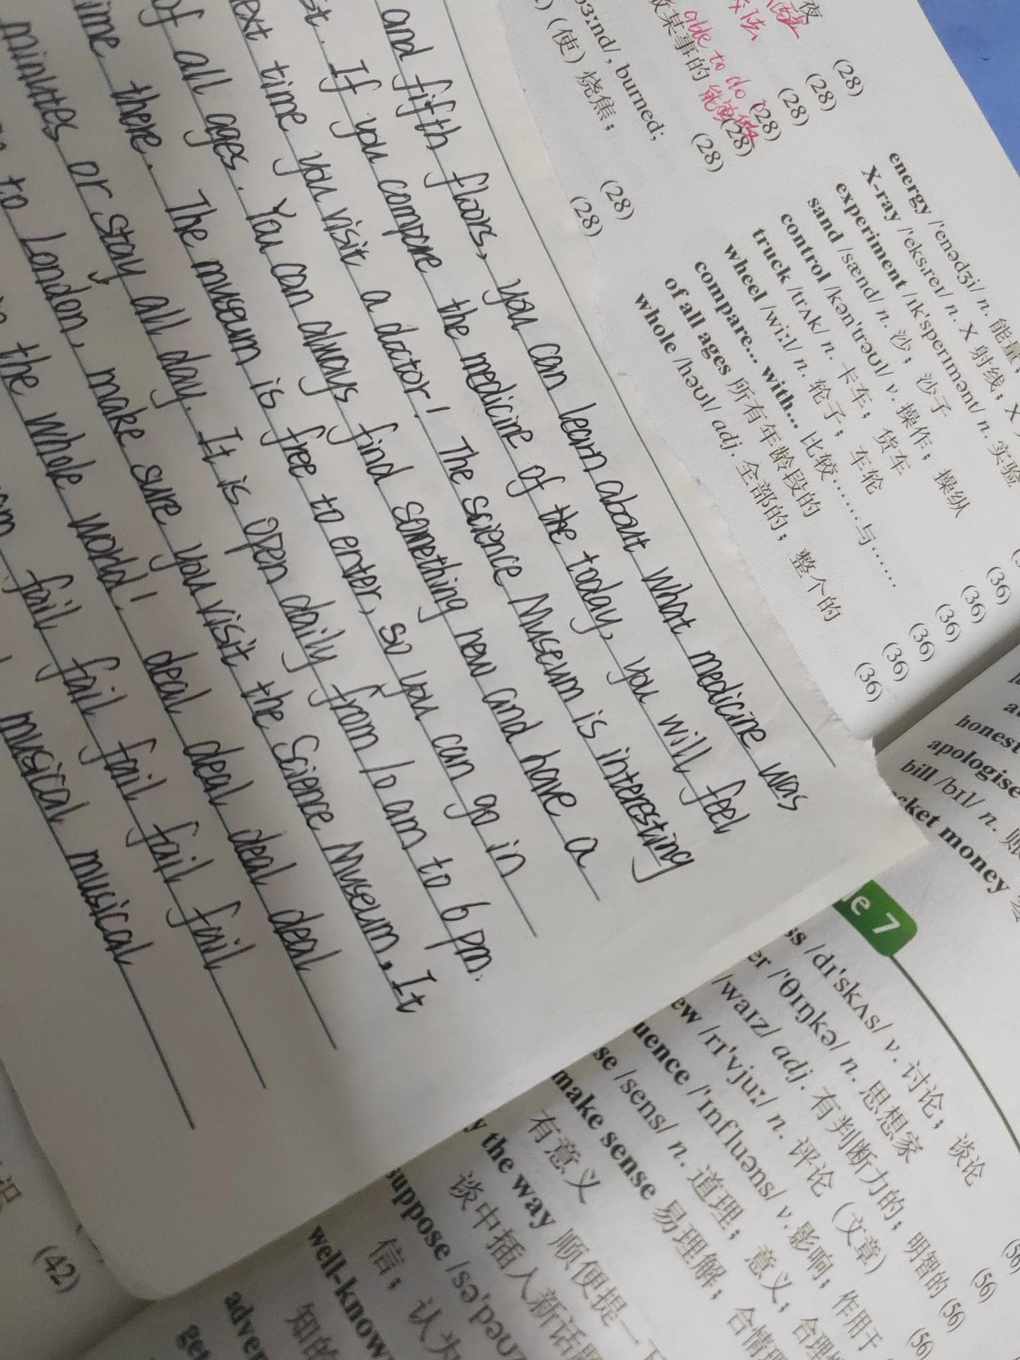 and fifth floors, you can learn about what medicine was
If you compare the medicine of the today, you will feel
time you visit a doctor! The science Museum is interesting
of all ages. You can always find something new and have a
there. The museum is free to enter, so you can go in
minutes or stay all day. It is open daily from 10 am to 6 pm.
to London, make sure you visit the Science Museum. It
the whole world! deal deal deal deal
fail fail fail fail fail
musical musical
夜
able to do
(28)
某事的
(28)
(28)
(28)
/, burned;
(28)
(使) 烧焦;
(28)
(28)
energy /'enədʒi/ n. 能量;
X-ray /'eksreɪ/ n. X 射线; X
experiment /ɪk'sperimənt/ n. 实验
sand /sænd/ n. 沙; 沙子
control /kən'trəʊl/ v. 操作; 操纵
truck /trʌk/ n. 卡车; 货车
wheel /wiːl/ n. 轮子; 车轮
compare... with... 比较……与……
of all ages 所有年龄段的
whole /həʊl/ adj. 全部的; 整个的
(36)
(36)
(36)
(36)
(36)
(36)
honest
apologise
bill /bɪl/ n.
pocket money
7
/dɪ'skʌs/ v. 讨论; 谈论
/'θɪŋkə/ n. 思想家
/waɪz/ adj. 有判断力的; 明智的 (56)
/rɪ'vjuː/ n. 评论 (文章)
/'ɪnfluəns/ v. 影响; 作用于
/sens/ n. 道理; 意义; 合理
make sense 易理解; 合情
有意义
the way 顺便提一下
谈中插入新话题
suppose /sə'pəʊz
信; 认为
well-known
知的
adver
(56)
(56)
(56)
(42)